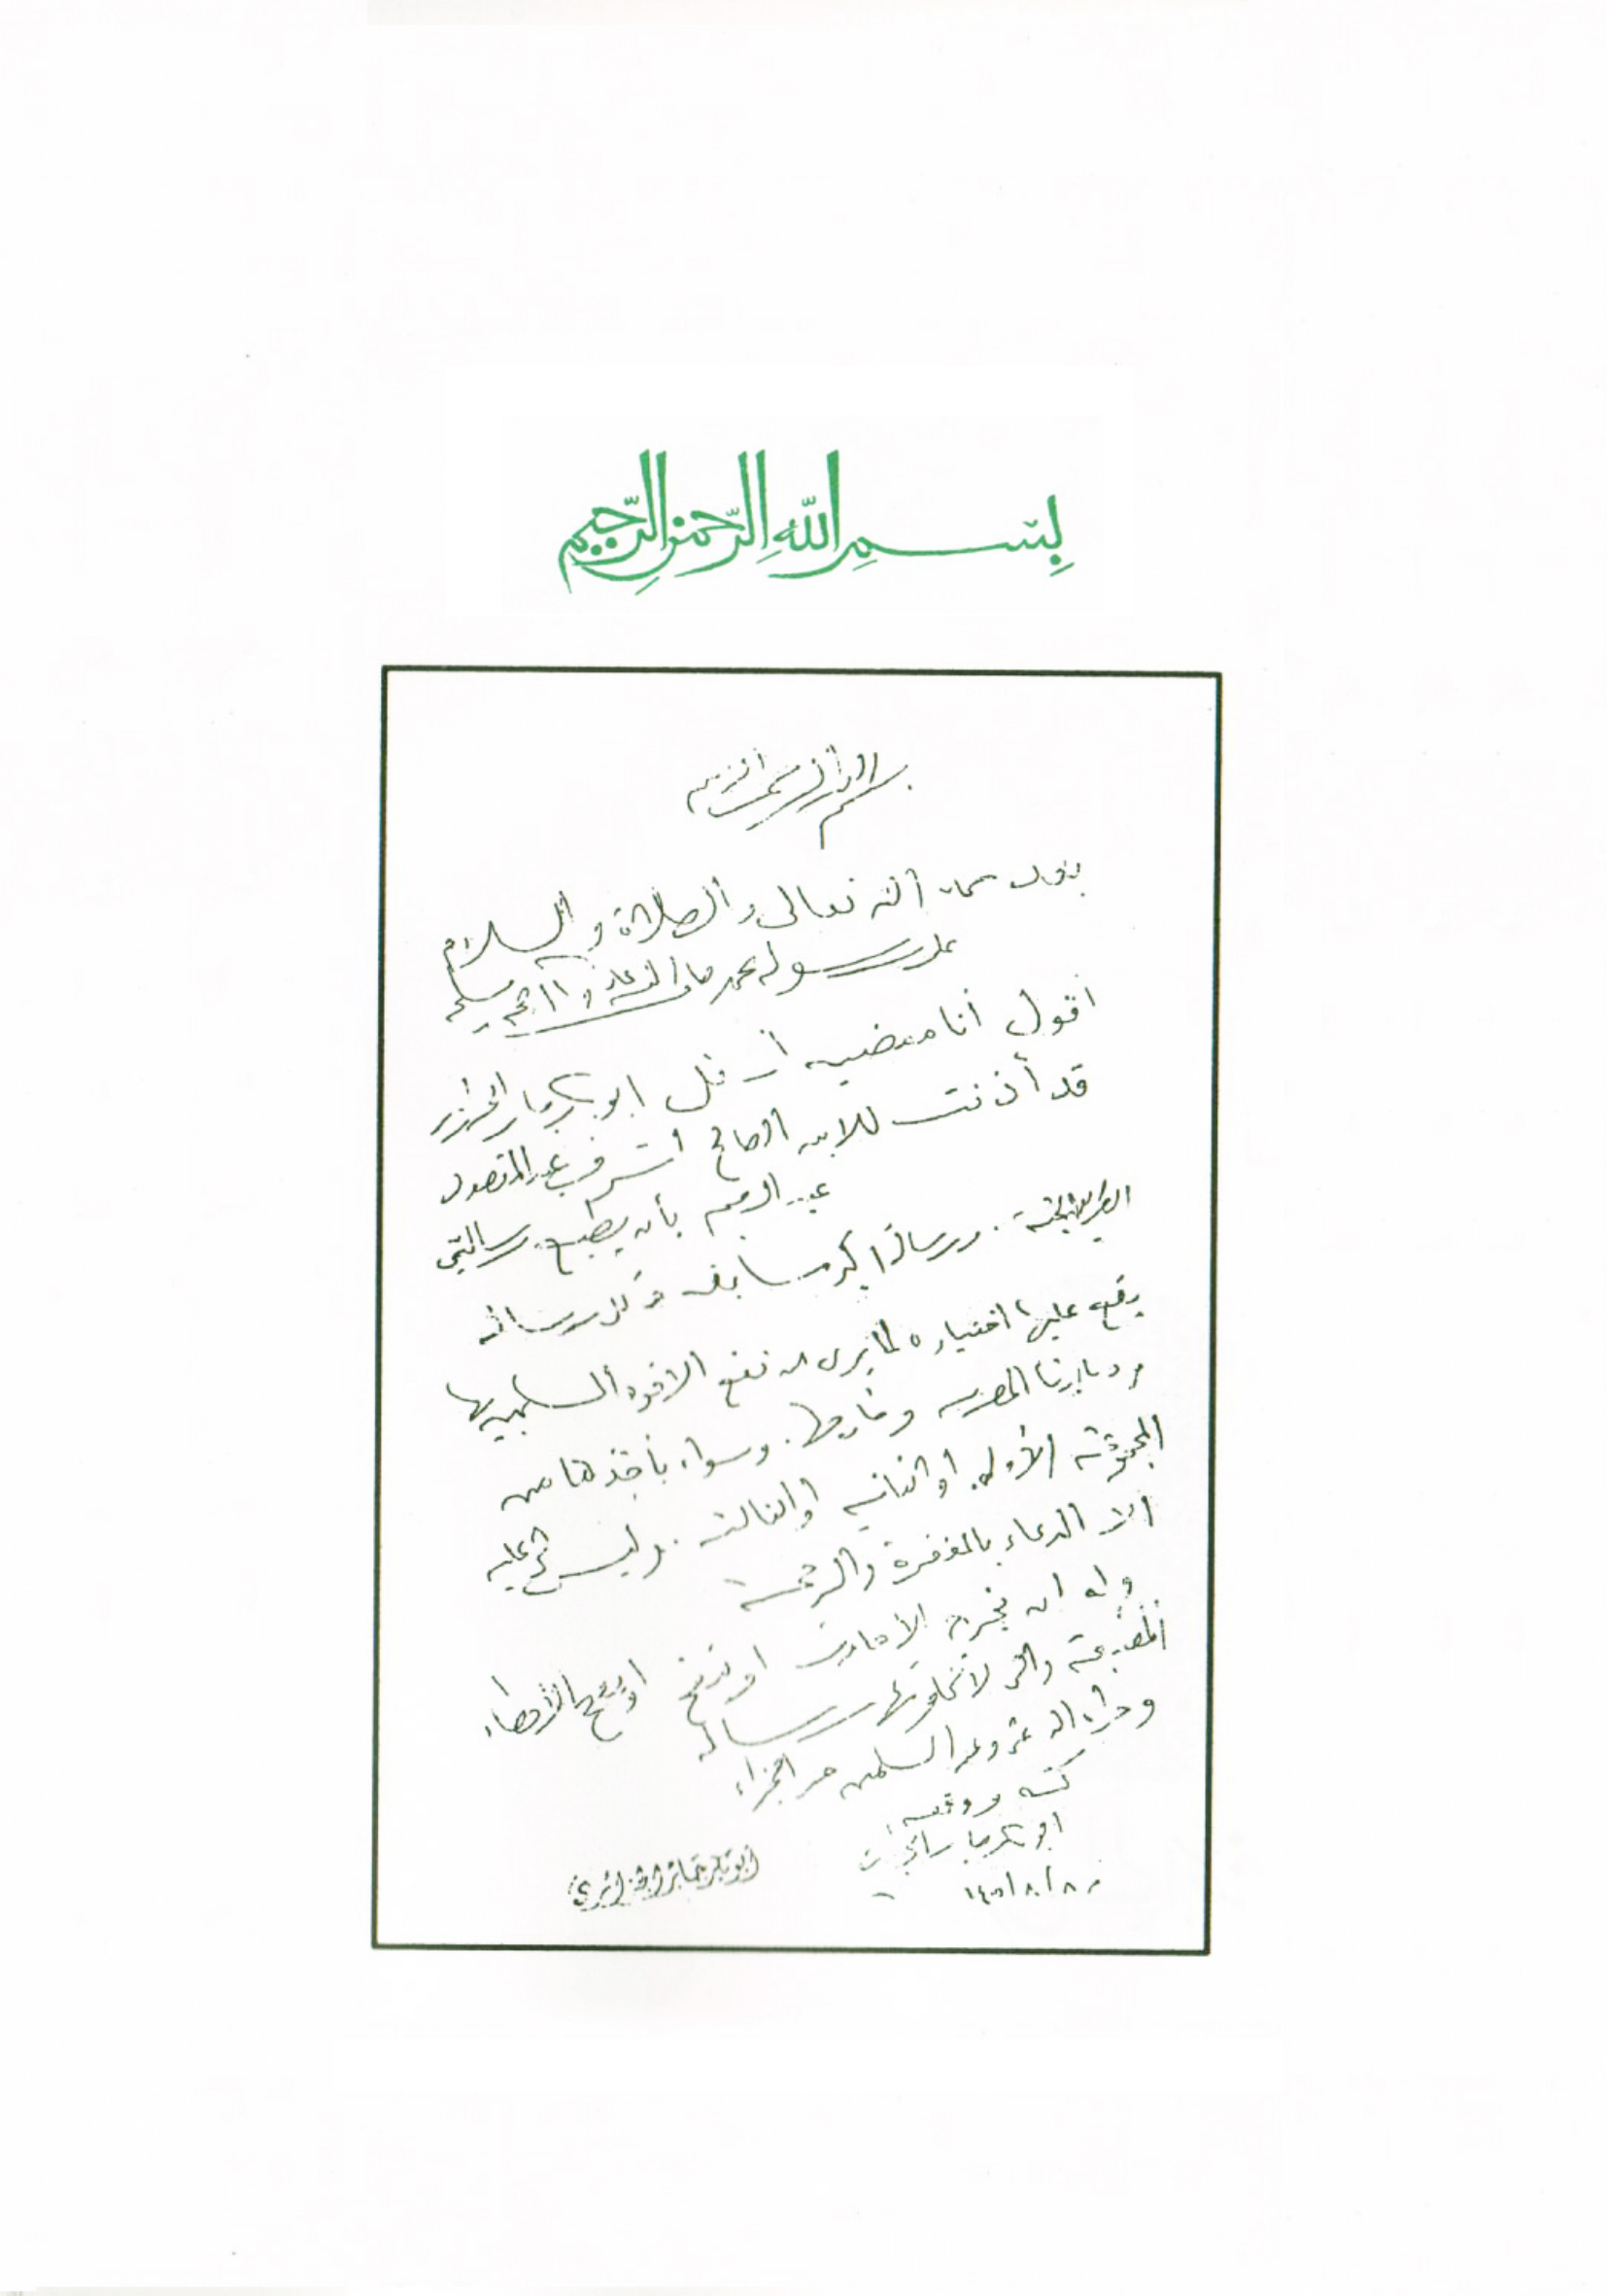 بِسْمِ اللهِ الرَّحْمنِ الرَّحِيمِ
بسم الله الرحمن الرحيم
بعد حمد الله تعالى والصلاة والسلام
على رسوله محمد صلى الله عليه وآله وسلم
اقول أنا ابو بكر جابر الجزائري
قد أذنت للابن الصالح اشرف عبد المقصود
عبد الرحيم بأن يطبع رسالتي
ورسالة سابقة وكل رسالة
يقع عليها اختياره لما يرى من نفع الاخوة المسلمين بها
من ديارنا المصرية وخارجها. وسواء يأخذها من
المجموعة الأولى او الثانية او الثالثة. وليس لي عليه
الا الدعاء بالمغفرة والرحمة
وله ان يخرج الأحاديث او يصحح الأخطاء
المطبعية والتي لا تخلو منها رسالة
وجزاه الله عنى وعن المسلمين خير الجزاء
كتبه
ابو بكر جابر الجزائري
ابو بكر جابر الجزائري